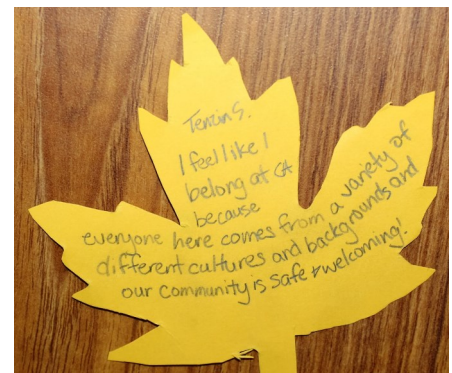 Tenzin S.
I feel like I
belong at CA
because
everyone here comes from a variety of
different cultures and backgrounds and
our community is safe & welcoming!